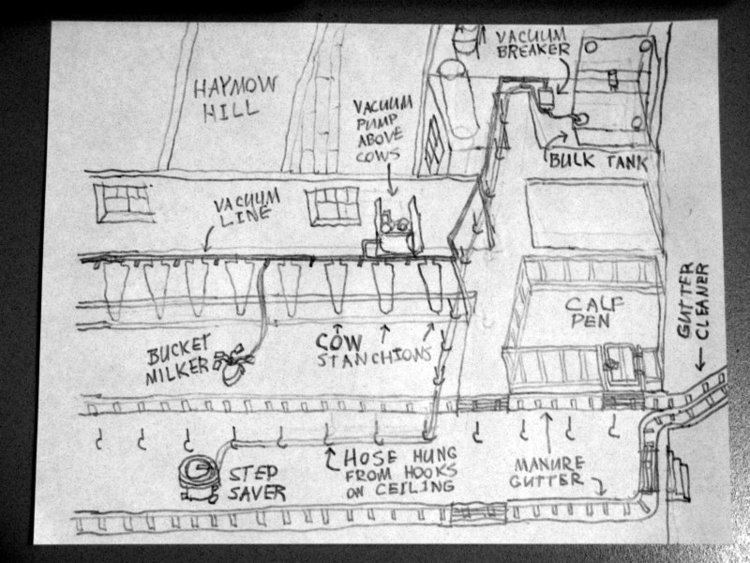 VACUUM
BREAKER
HAYMOW
HILL
VACUUM
PUMP
ABOVE
COWS
BULK TANK
VACUUM
LINE
GUTTER
CLEANER
CALF
PEN
BUCKET
MILKER
COW
STANCHIONS
STEP
SAVER
HOSE HUNG
FROM HOOKS
ON CEILING
MANURE
GUTTER